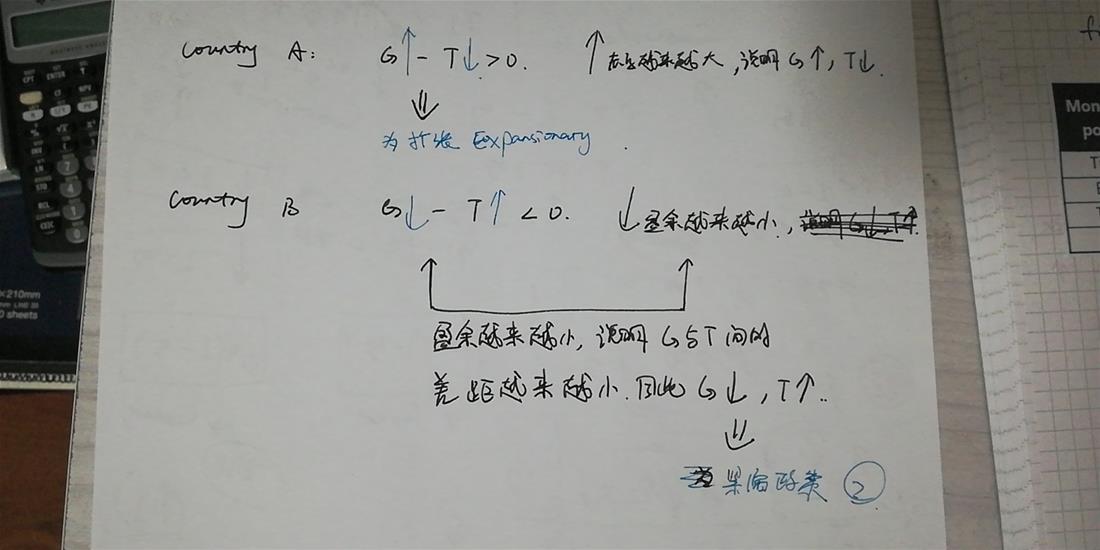 Country A: G↑ - T↓ > 0. ↑ 赤字越来越大, 说明 G↑, T↓.
⇓
为扩张 Expansionary.
Country B G↓ - T↑ < 0. ↓ 盈余越来越小,
盈余越来越小, 说明 G与T间的
差距越来越小. 因此 G↓, T↑..
⇓
紧缩政策 ②
×210mm
sheets
Mon
po
T